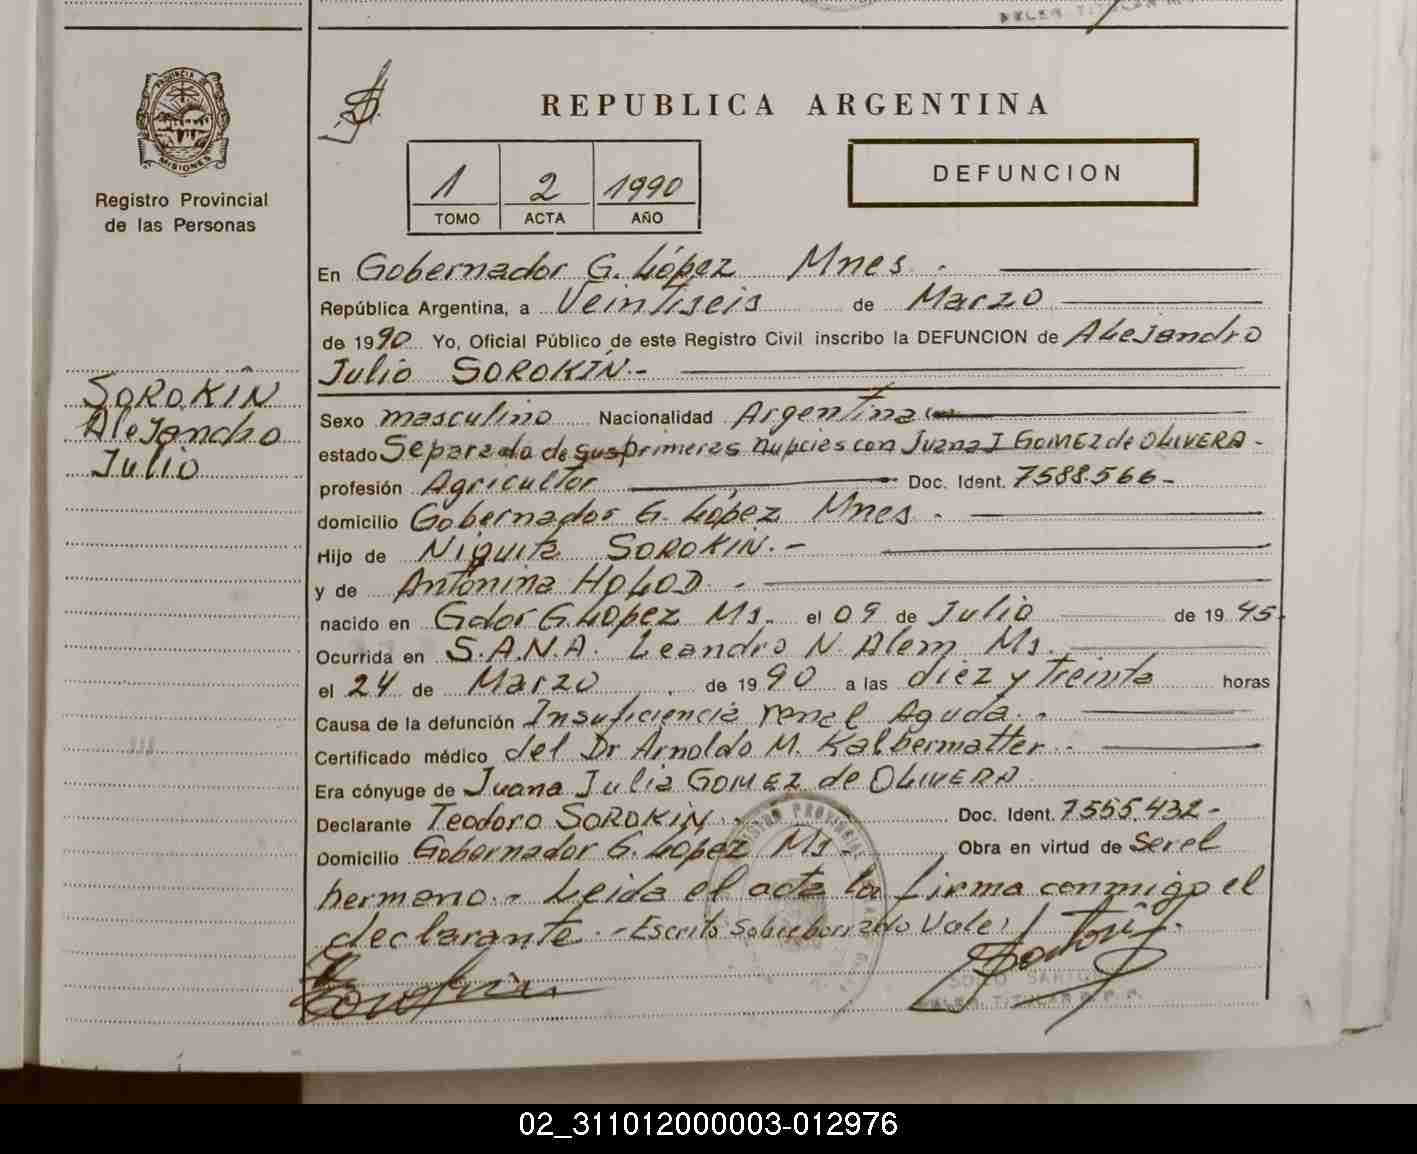 PROVINCIA DE
MISIONES
Registro Provincial
de las Personas
SOROKIN
Alejandro
Julio
REPUBLICA ARGENTINA
1 2 1990
TOMO ACTA AÑO
DEFUNCION
En Gobernador G. López Mnes.
República Argentina, a Veintiseis de Marzo
de 1990 Yo, Oficial Público de este Registro Civil inscribo la DEFUNCION de Alejandro
Julio SOROKIN.-
Sexo masculino Nacionalidad Argentina
estado Separado de sus primeras nupcias con Juana J GOMEZ de OLIVERA-
profesión Agricultor Doc. Ident. 7588.566-
domicilio Gobernador G. López Mnes.
Hijo de Niquita SOROKIN.-
y de Antonina HOLOD.
nacido en Gdor G. López Ms. el 09 de Julio de 1945.
Ocurrida en S.A.N.A. Leandro N. Alem Ms.
el 24 de Marzo de 1990 a las diez y treinta horas
Causa de la defunción Insuficiencia renal Aguda.
Certificado médico del Dr Arnoldo M. Kalbermatter.
Era cónyuge de Juana Julia GOMEZ de OLIVERA
Declarante Teodoro SOROKIN. Doc. Ident. 7555.432-
Domicilio Gobernador G. López Ms. Obra en virtud de Ser el
hermano.- Leida el acta la firma conmigo el
declarante.- Escrito Sobreborrado Vale/
02_311012000003-012976